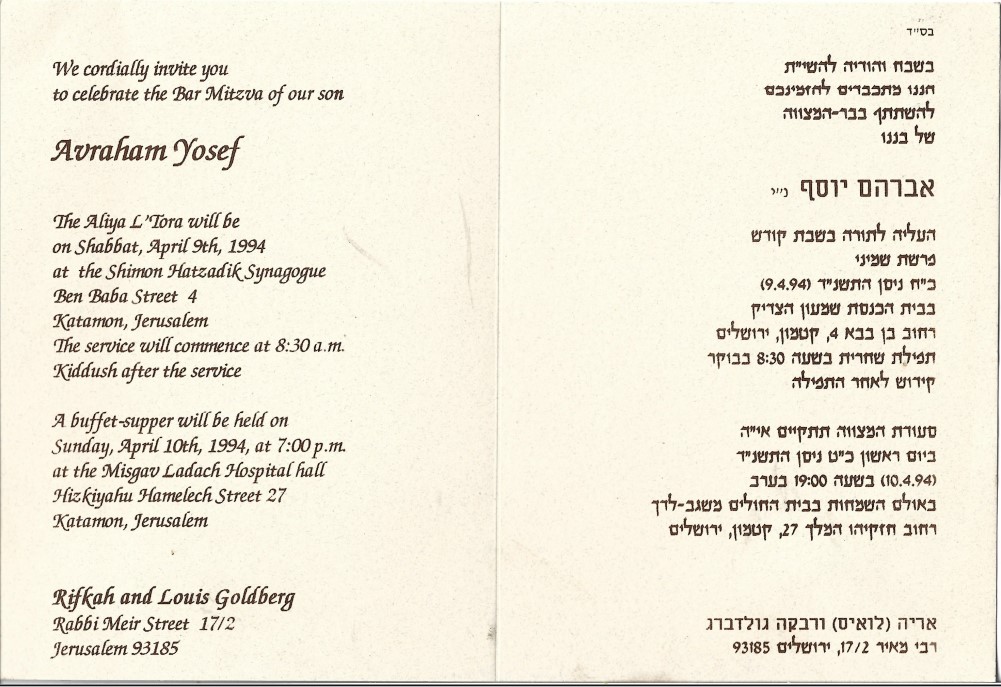 We cordially invite you
to celebrate the Bar Mitzva of our son
Avraham Yosef
The Aliya L'Tora will be
on Shabbat, April 9th, 1994
at the Shimon Hatzadik Synagogue
Ben Baba Street 4
Katamon, Jerusalem
The service will commence at 8:30 a.m.
Kiddush after the service
A buffet-supper will be held on
Sunday, April 10th, 1994, at 7:00 p.m.
at the Misgav Ladach Hospital hall
Hizkiyahu Hamelech Street 27
Katamon, Jerusalem
Rifkah and Louis Goldberg
Rabbi Meir Street 17/2
Jerusalem 93185
בס״ד
בשבח והודיה להשי״ת
הננו מתכבדים להזמינכם
להשתתף בבר-המצווה
של בננו
אברהם יוסף נ״י
העליה לתורה בשבת קודש
פרשת שמיני
כ״ח ניסן התשנ״ד (9.4.94)
בבית הכנסת שמעון הצדיק
רחוב בן בבא 4, קטמון, ירושלים
תפילת שחרית בשעה 8:30 בבוקר
קידוש לאחר התפילה
סעודת המצווה תתקיים אי״ה
ביום ראשון כ״ט ניסן התשנ״ד
(10.4.94) בשעה 19:00 בערב
באולם השמחות בבית החולים משגב-לדך
רחוב חזקיהו המלך 27, קטמון, ירושלים
אריה (לואיס) ורבקה גולדברג
רבי מאיר 17/2, ירושלים 93185